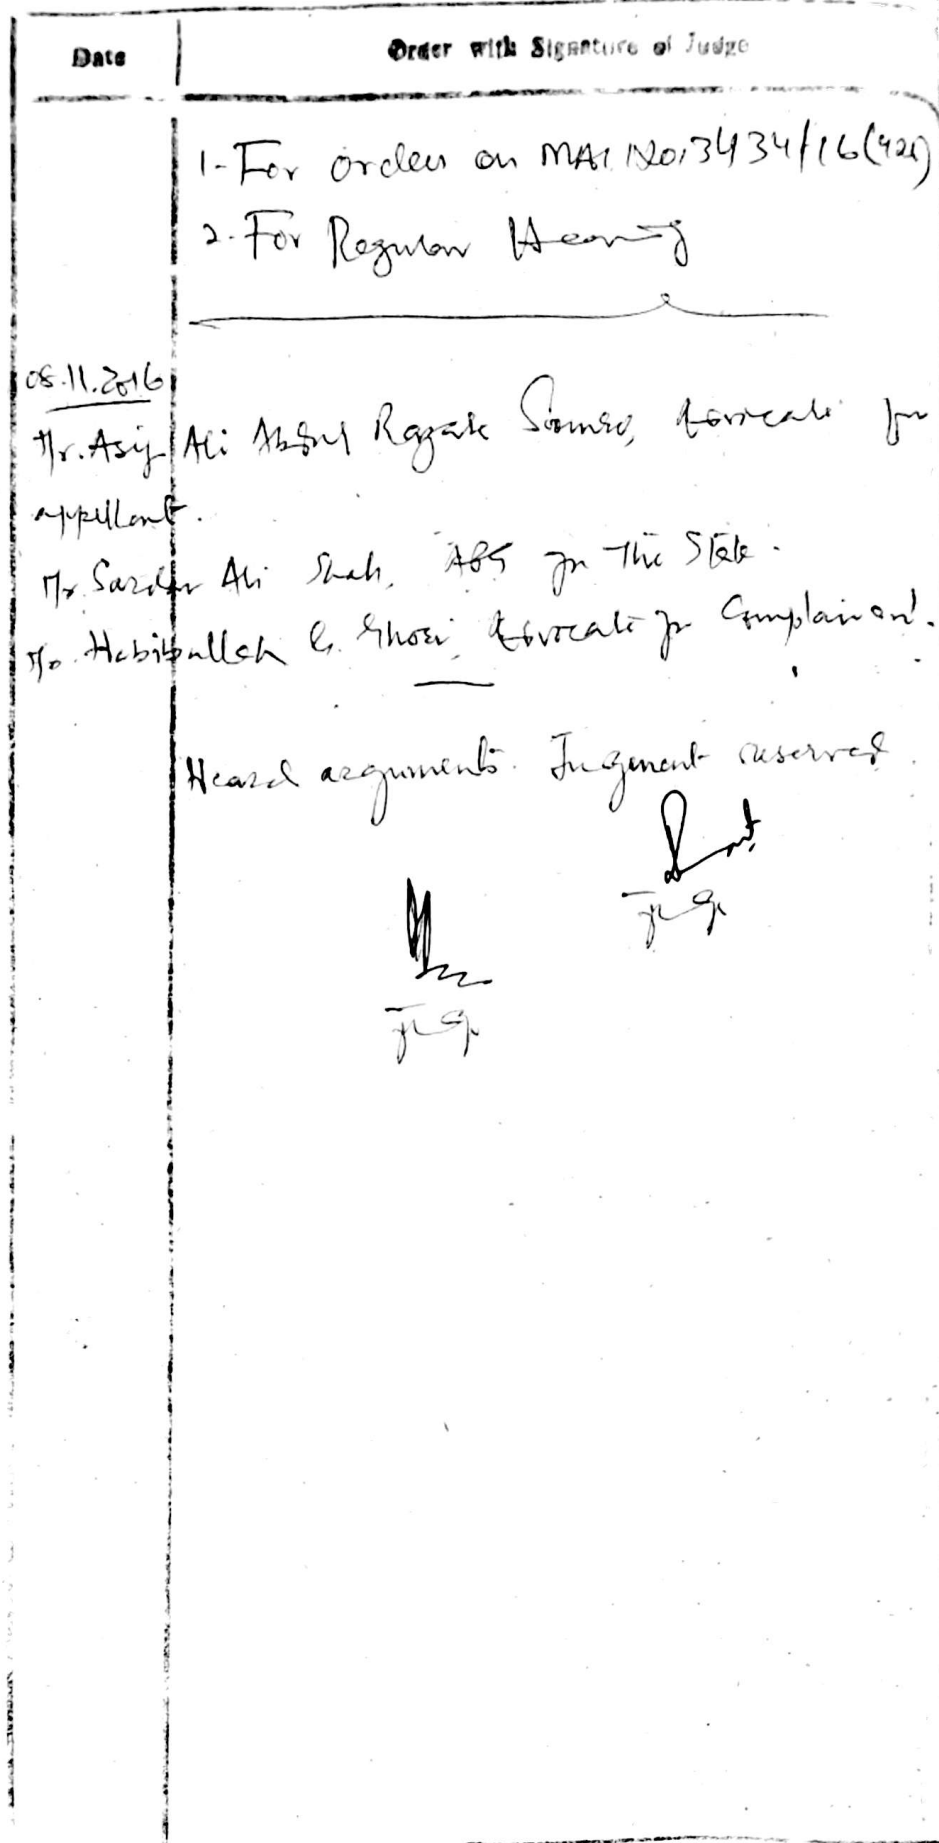 Date
Order with Signature of Judge
1- For orders on MA. No. 3434/16 (426)
2- For Regular Hearing
08.11.2016
Mr. Asif Ali Abdul Razak Soomro, Advocate for
appellant.
Mr. Sardar Ali Shah, APG for the State.
Mr. Habibullah G. Ghori, Advocate for Complainant.
Heard arguments. Judgment reserved.